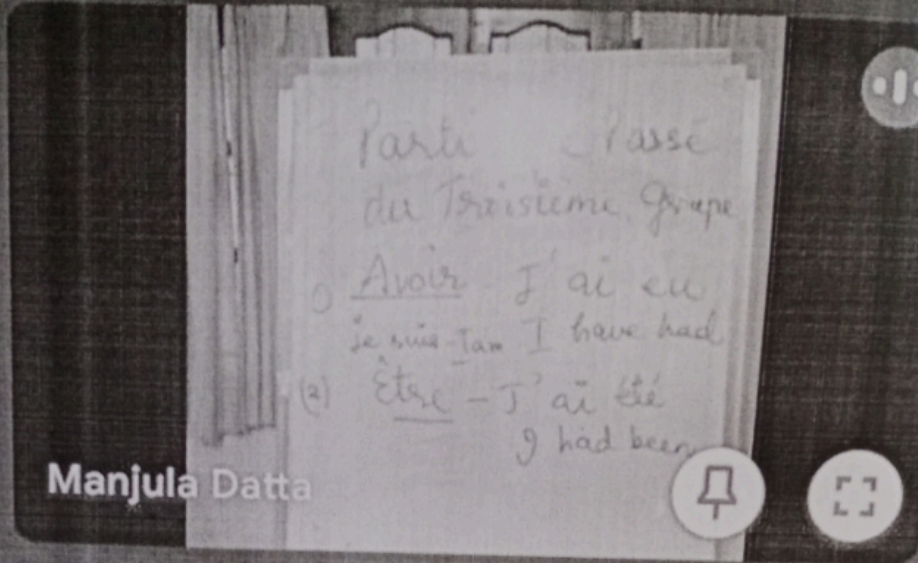 Parti Passé
du Troisième Groupe
1) Avoir - J'ai eu
je suis - I am I have had
(2) Être - J'ai été
I had been
Manjula Datta